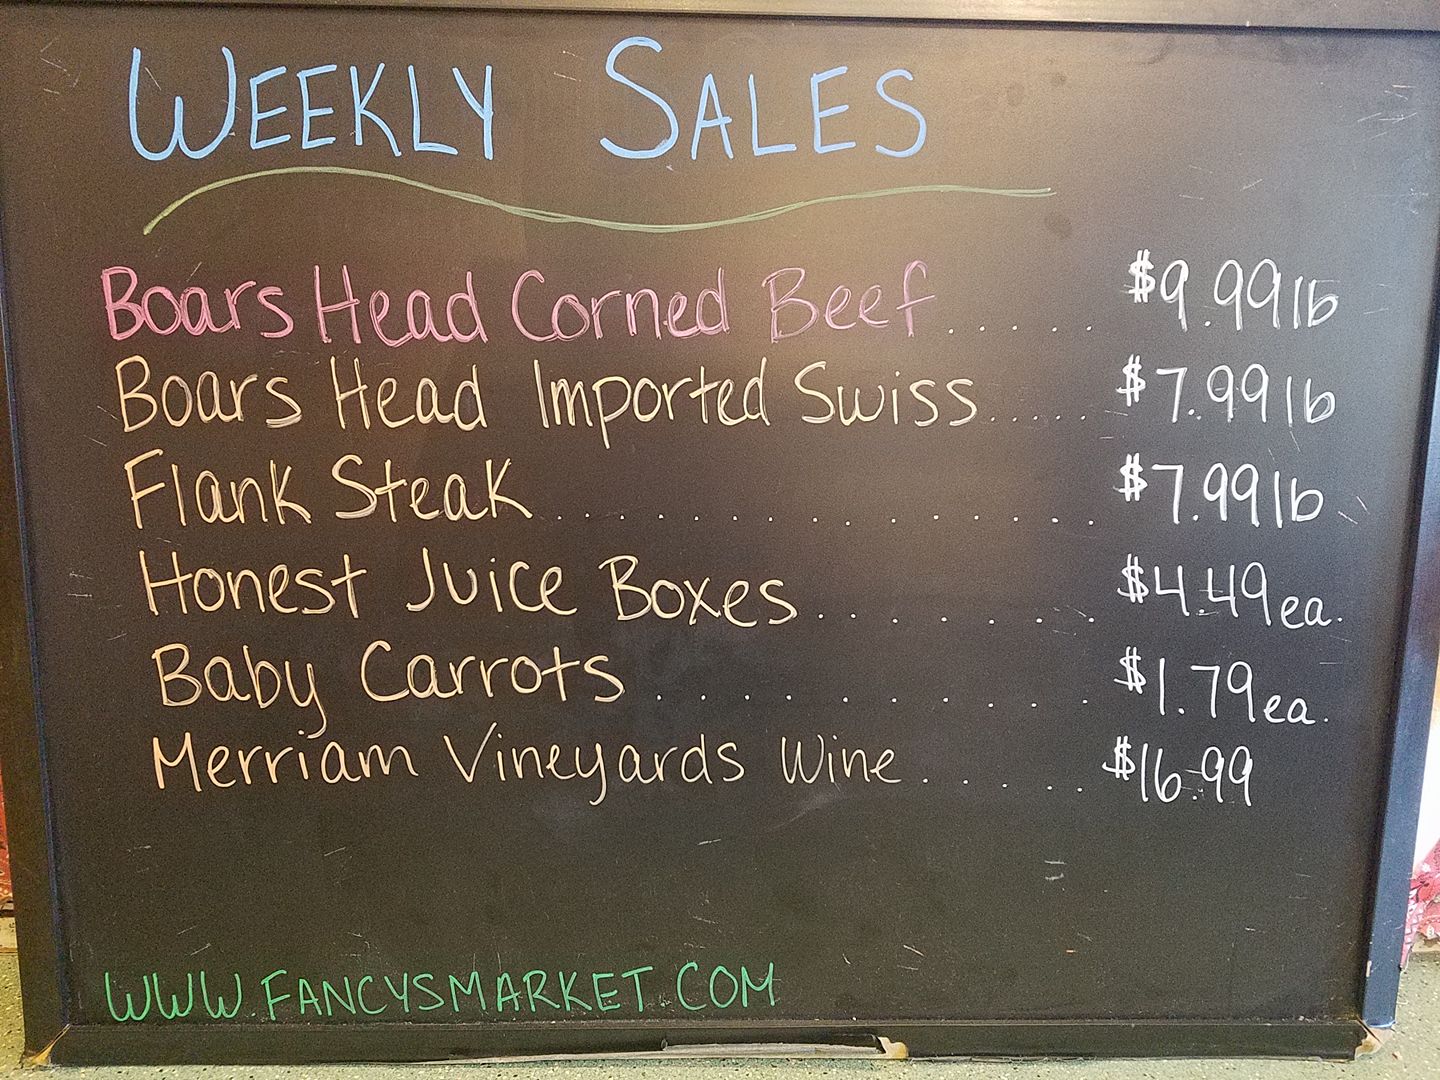 WEEKLY SALES
Boars Head Corned Beef...... $9.99 lb
Boars Head Imported Swiss..... $7.99 lb
Flank Steak................ $7.99 lb
Honest Juice Boxes........ $4.49 ea.
Baby Carrots........... $1.79 ea.
Merriam Vineyards Wine..... $16.99
WWW.FANCYSMARKET.COM